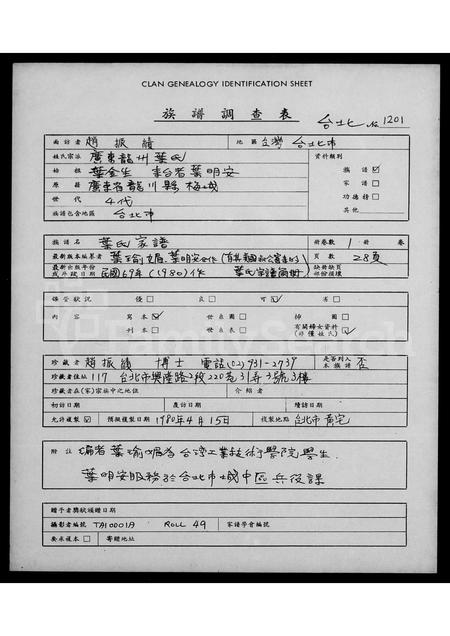 CLAN GENEALOGY IDENTIFICATION SHEET
族譜調查表 台北 № 1201
面訪者 趙振績 地區 台灣 台北市
姓氏宗派 廣東龍川葉氏 資料類別
始祖 葉金生 葉明安 族譜 ☑
原籍 廣東省龍川縣 家譜 ☐
世代 4代 功德榜 ☐
族譜包含地區 台北市 其他
譜名 葉氏家譜 冊卷數 1 冊 卷
最新版本編著 葉明安 頁數 28頁
最新出版年份或手政日期 民國69年(1980)作 缺冊缺頁部份損壞
保管狀況 優 ☐ 良 ☐ 可 ☑ 劣 ☐
內容 寫本 ☑ 世系圖 ☐ 掃圖 ☐
刊本 ☐ 世系表 ☐ 有關婦女資料(非僅姓氏) ☑
珍藏者 趙振績 博士 電話(02)931-2739 是否列入本族譜 否
珍藏者住址 117 台北市興隆路2段220巷31弄3號3樓
珍藏者在(家)宗族中之地位 介紹者
初訪日期 復訪日期 續訪日期
允許複製 ☑ 預擬複製日期 1980年4月15日 複製地點 台北市 黃宅
附註 編者葉瑜嬌為台灣工業技術學院學生.
葉明安服務於台北市城中區兵役課
贈予者獎狀頒贈日期
攝影者編號 TA10001A ROLL 49 家譜學會編號
要求複本 ☐ 寄贈地址
FamilySearch